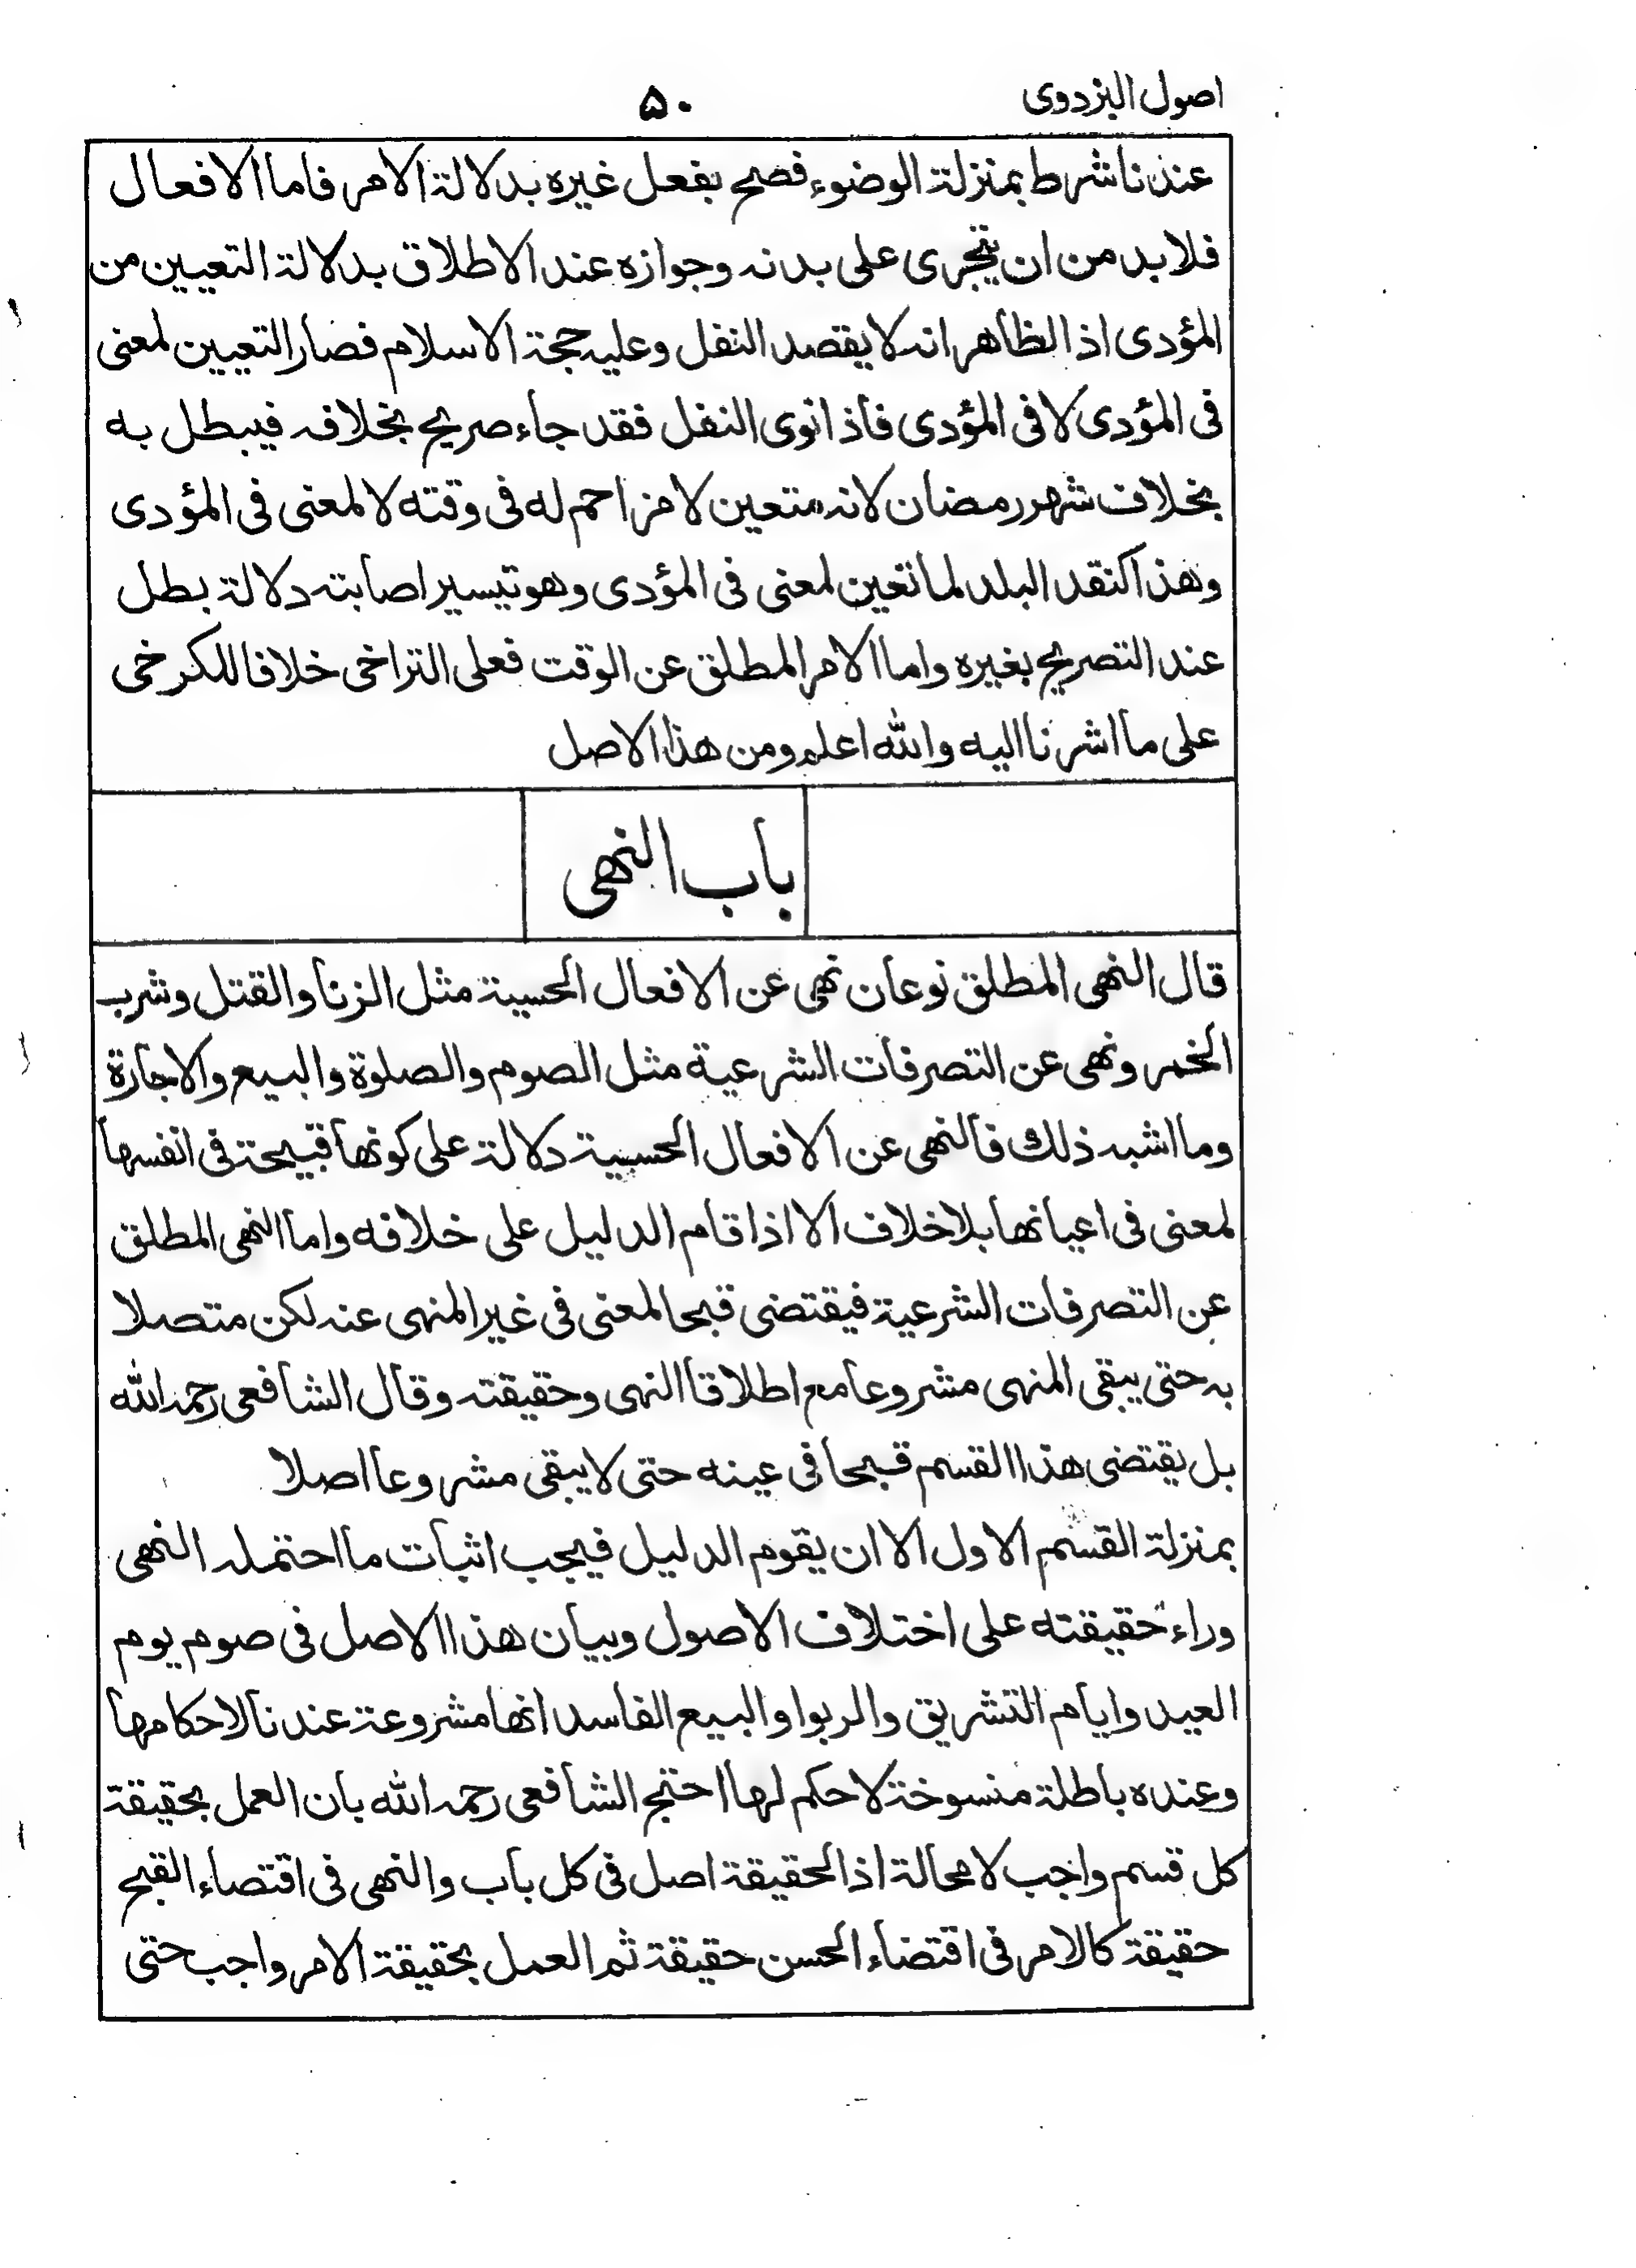 اصول البزدوی
۵۰
عندنا شرط بمنزلة الوضوء فصح بفعل غيره بدلالة الامر فاما الافعال
فلابد من ان يجرى على بدنه وجوازه عند الاطلاق بدلالة التعيين من
المؤدى اذ الظاهر انه لا يقصد النفل وعليه حجة الاسلام فصار التعيين لمعنى
فى المؤدى لا فى المؤدى فاذا نوى النفل فقد جاء صريح بخلافه فيبطل به
بخلاف شهر رمضان لانه متعين لا مزاحم له فى وقته لا لمعنى فى المؤدى
وهذا كنقد البلد لما تعين لمعنى فى المؤدى وهو تيسير اصابته دلالة بطل
عند التصريح بغيره واما الامر المطلق عن الوقت فعلى التراخى خلافا للكرخى
على ما اشرنا اليه والله اعلم ومن هذا الاصل
باب النهى
قال النهى المطلق نوعان نهى عن الافعال الحسية مثل الزنا والقتل وشرب
الخمر ونهى عن التصرفات الشرعية مثل الصوم والصلوة والبيع والاجارة
وما اشبه ذلك فالنهى عن الافعال الحسية دلالة على كونها قبيحة فى انفسها
لمعنى فى اعيانها بلا خلاف الا اذا قام الدليل على خلافه واما النهى المطلق
عن التصرفات الشرعية فيقتضى قبحا لمعنى فى غير المنهى عنه لكن متصلا
به حتى يبقى المنهى مشروعا مع اطلاق النهى وحقيقته وقال الشافعى رحمه الله
بل يقتضى هذا القسم قبحا فى عينه حتى لا يبقى مشروعا اصلا
بمنزلة القسم الاول الا ان يقوم الدليل فيجب اثبات ما احتمله النهى
وراء حقيقته على اختلاف الاصول وبيان هذا الاصل فى صوم يوم
العيد وايام التشريق والربوا والبيع الفاسد انها مشروعة عندنا لاحكامها
وعنده باطلة منسوخة لا حكم لها احتج الشافعى رحمه الله بان العمل بحقيقة
كل قسم واجب لا محالة اذ الحقيقة اصل فى كل باب والنهى فى اقتضاء القبح
حقيقة كالامر فى اقتضاء الحسن حقيقة ثم العمل بحقيقة الامر واجب حتى